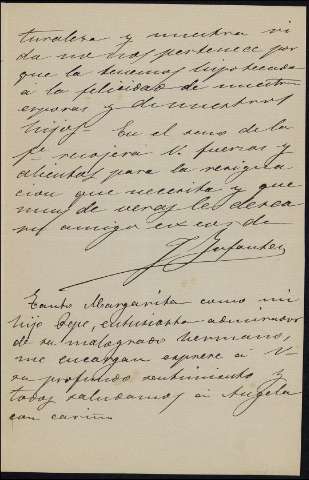 turaleza y nuestra vi
da no nos pertenece por
que la tenemos hipotecada
a la felicidad de nuestras
esposas y de nuestros
hijos. En el seno de la
fe recojera V. fuerzas y
alientos para la resigna
cion que necesita y que
muy de veras le desea
su amigo ex corde
J. Infantes
Tanto Margarita como mi
hijo Pepe, entusiasta admirador
de su malogrado hermano,
me encargan esprese a V.
su profundo sentimiento y
todos saludamos á Angela
con cariño